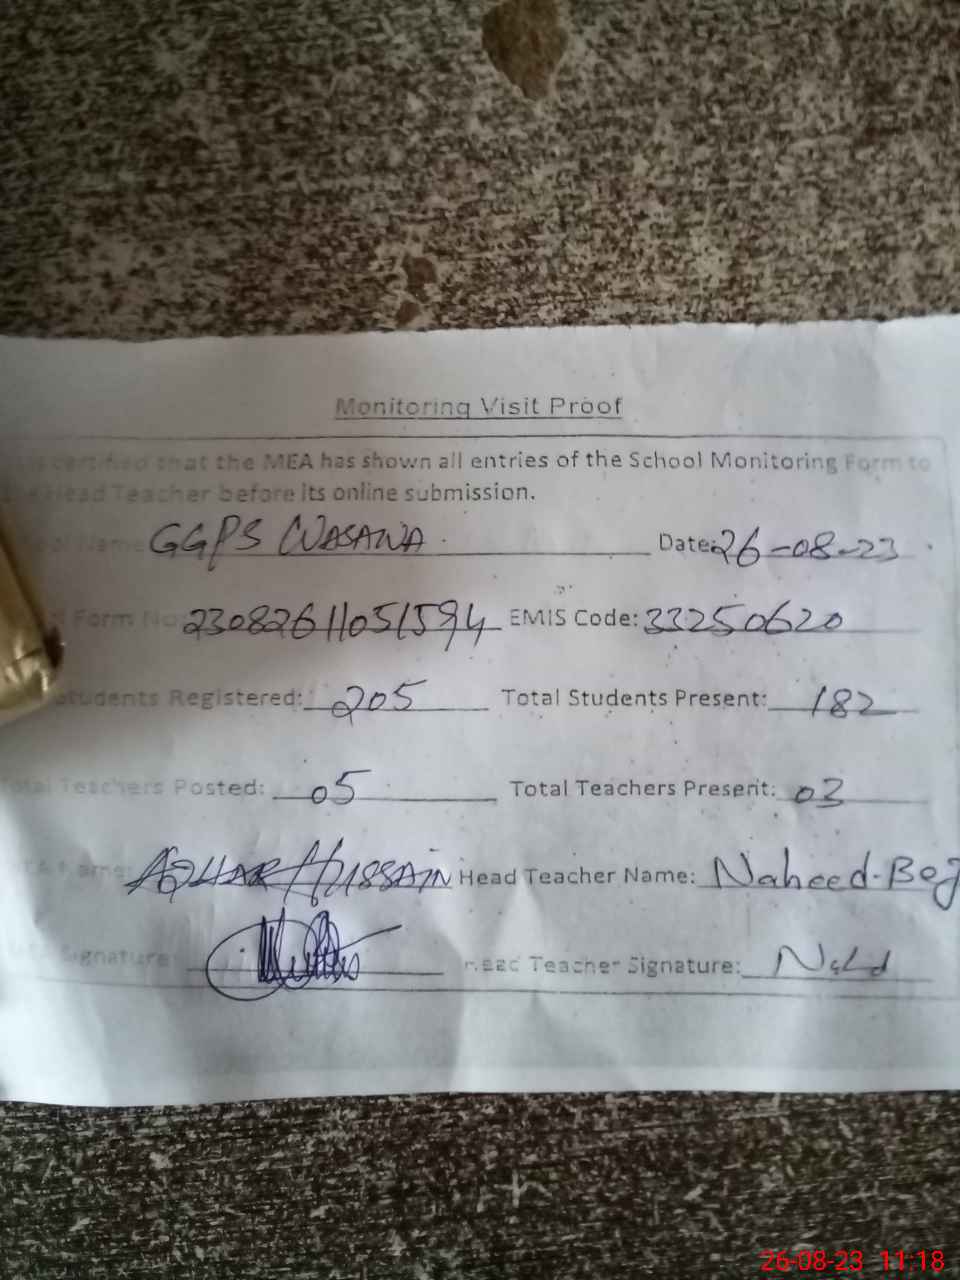 Monitoring Visit Proof
is certified that the MEA has shown all entries of the School Monitoring Form to
Head Teacher before its online submission.
Name GGPS WASAWA Date: 26-08-23
Form No: 23082611051594 EMIS Code: 33250620
Students Registered: 205 Total Students Present: 182
Total Teachers Posted: 05 Total Teachers Present: 03
Name: AZHAR HUSSAIN Head Teacher Name: Naheed.Beg
Signature: Head Teacher Signature:
26-08-23 11:18